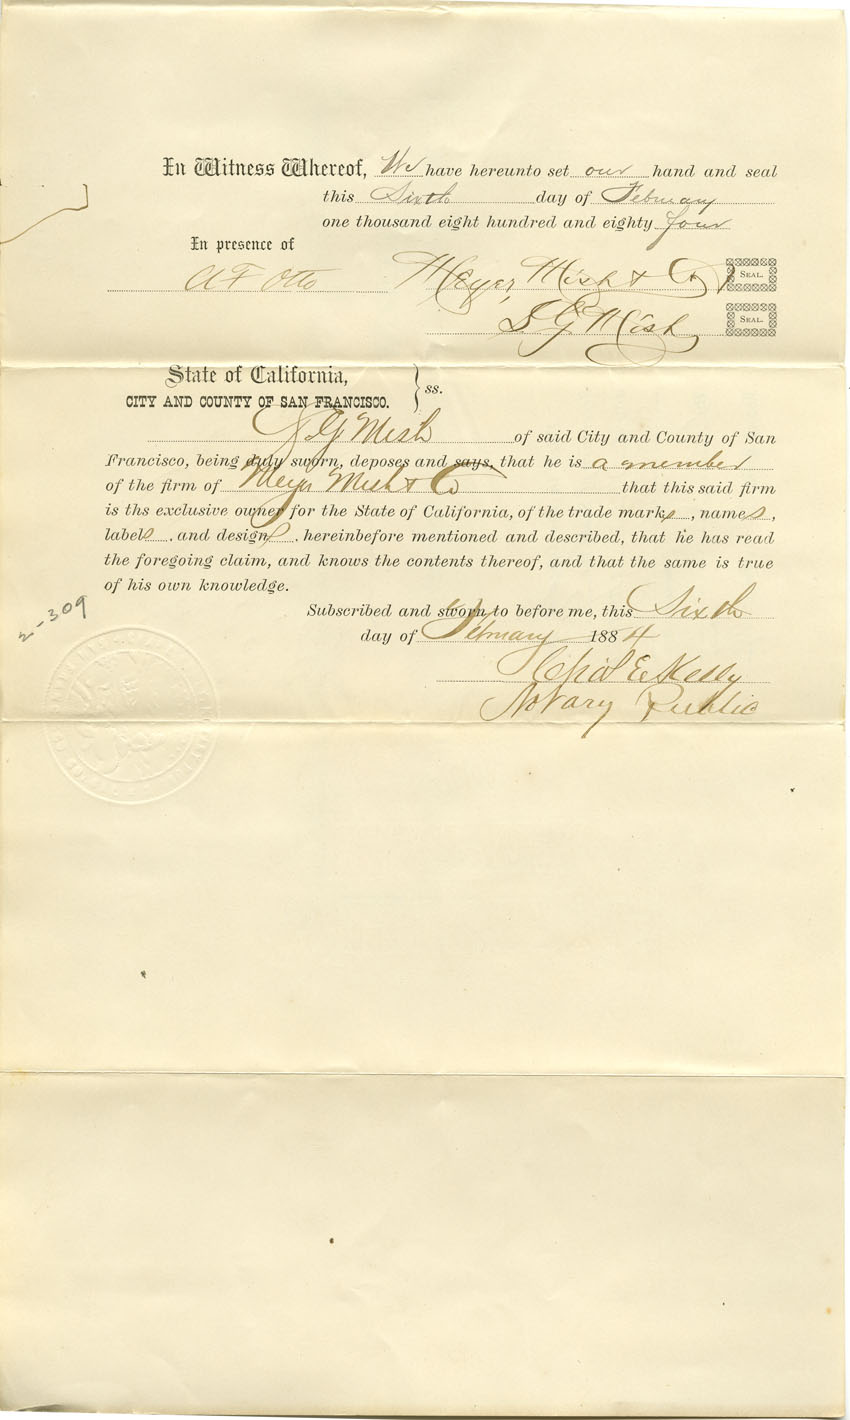 In Witness Whereof, We have hereunto set our hand and seal
this Sixth day of February
one thousand eight hundred and eighty four
In presence of
A F Otto Meyer, Mish & Co SEAL.
S G Mish SEAL.
State of California,
CITY AND COUNTY OF SAN FRANCISCO. } ss.
S G Mish of said City and County of San
Francisco, being duly sworn, deposes and says, that he is a member
of the firm of Meyer Mish & Co that this said firm
is ths exclusive owner for the State of California, of the trade marks, names,
labels, and designs, hereinbefore mentioned and described, that he has read
the foregoing claim, and knows the contents thereof, and that the same is true
of his own knowledge.
2-309
Subscribed and sworn to before me, this Sixth
day of February 1884
E Kelly
Notary Public